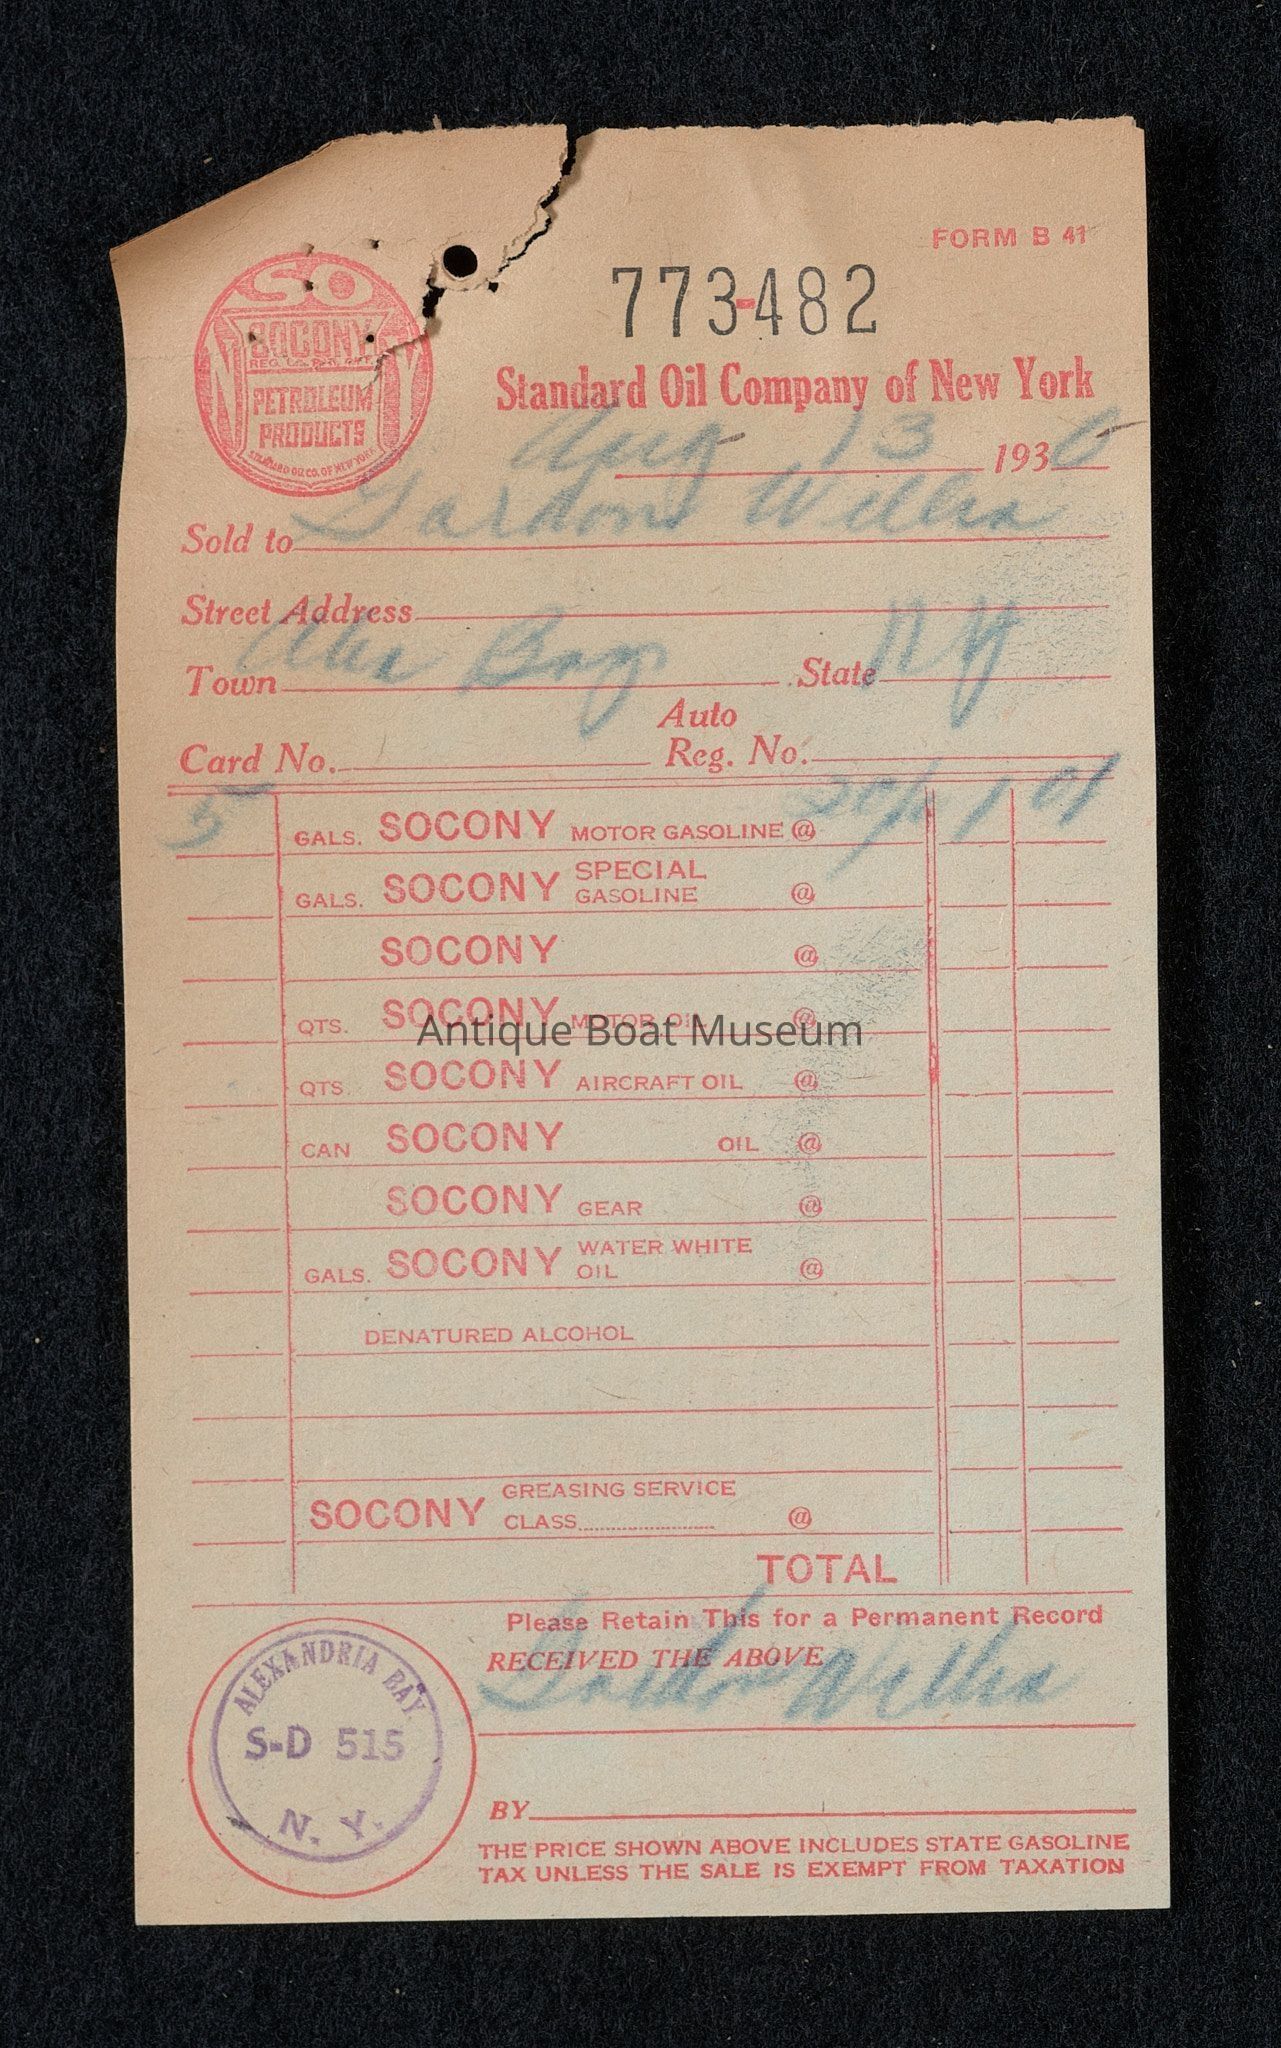 FORM B 41
773-482
SO
SOCONY
REG. U.S. PAT. OFF.
PETROLEUM
PRODUCTS
STANDARD OIL CO. OF NEW YORK
N Y
Standard Oil Company of New York
Aug 13 1930
Sold to Gordon Willis
Street Address
Town Alex Bay State NY
Auto
Card No. Reg. No.
5 GALS. SOCONY MOTOR GASOLINE @ 1 01
GALS. SOCONY SPECIAL GASOLINE @
SOCONY @
QTS. SOCONY MOTOR OIL @
Antique Boat Museum
QTS. SOCONY AIRCRAFT OIL @
CAN SOCONY OIL @
SOCONY GEAR @
GALS. SOCONY WATER WHITE OIL @
DENATURED ALCOHOL
SOCONY GREASING SERVICE
CLASS @
TOTAL
Please Retain This for a Permanent Record
RECEIVED THE ABOVE
Gordon Willis
ALEXANDRIA BAY
S-D 515
N. Y.
BY
THE PRICE SHOWN ABOVE INCLUDES STATE GASOLINE
TAX UNLESS THE SALE IS EXEMPT FROM TAXATION